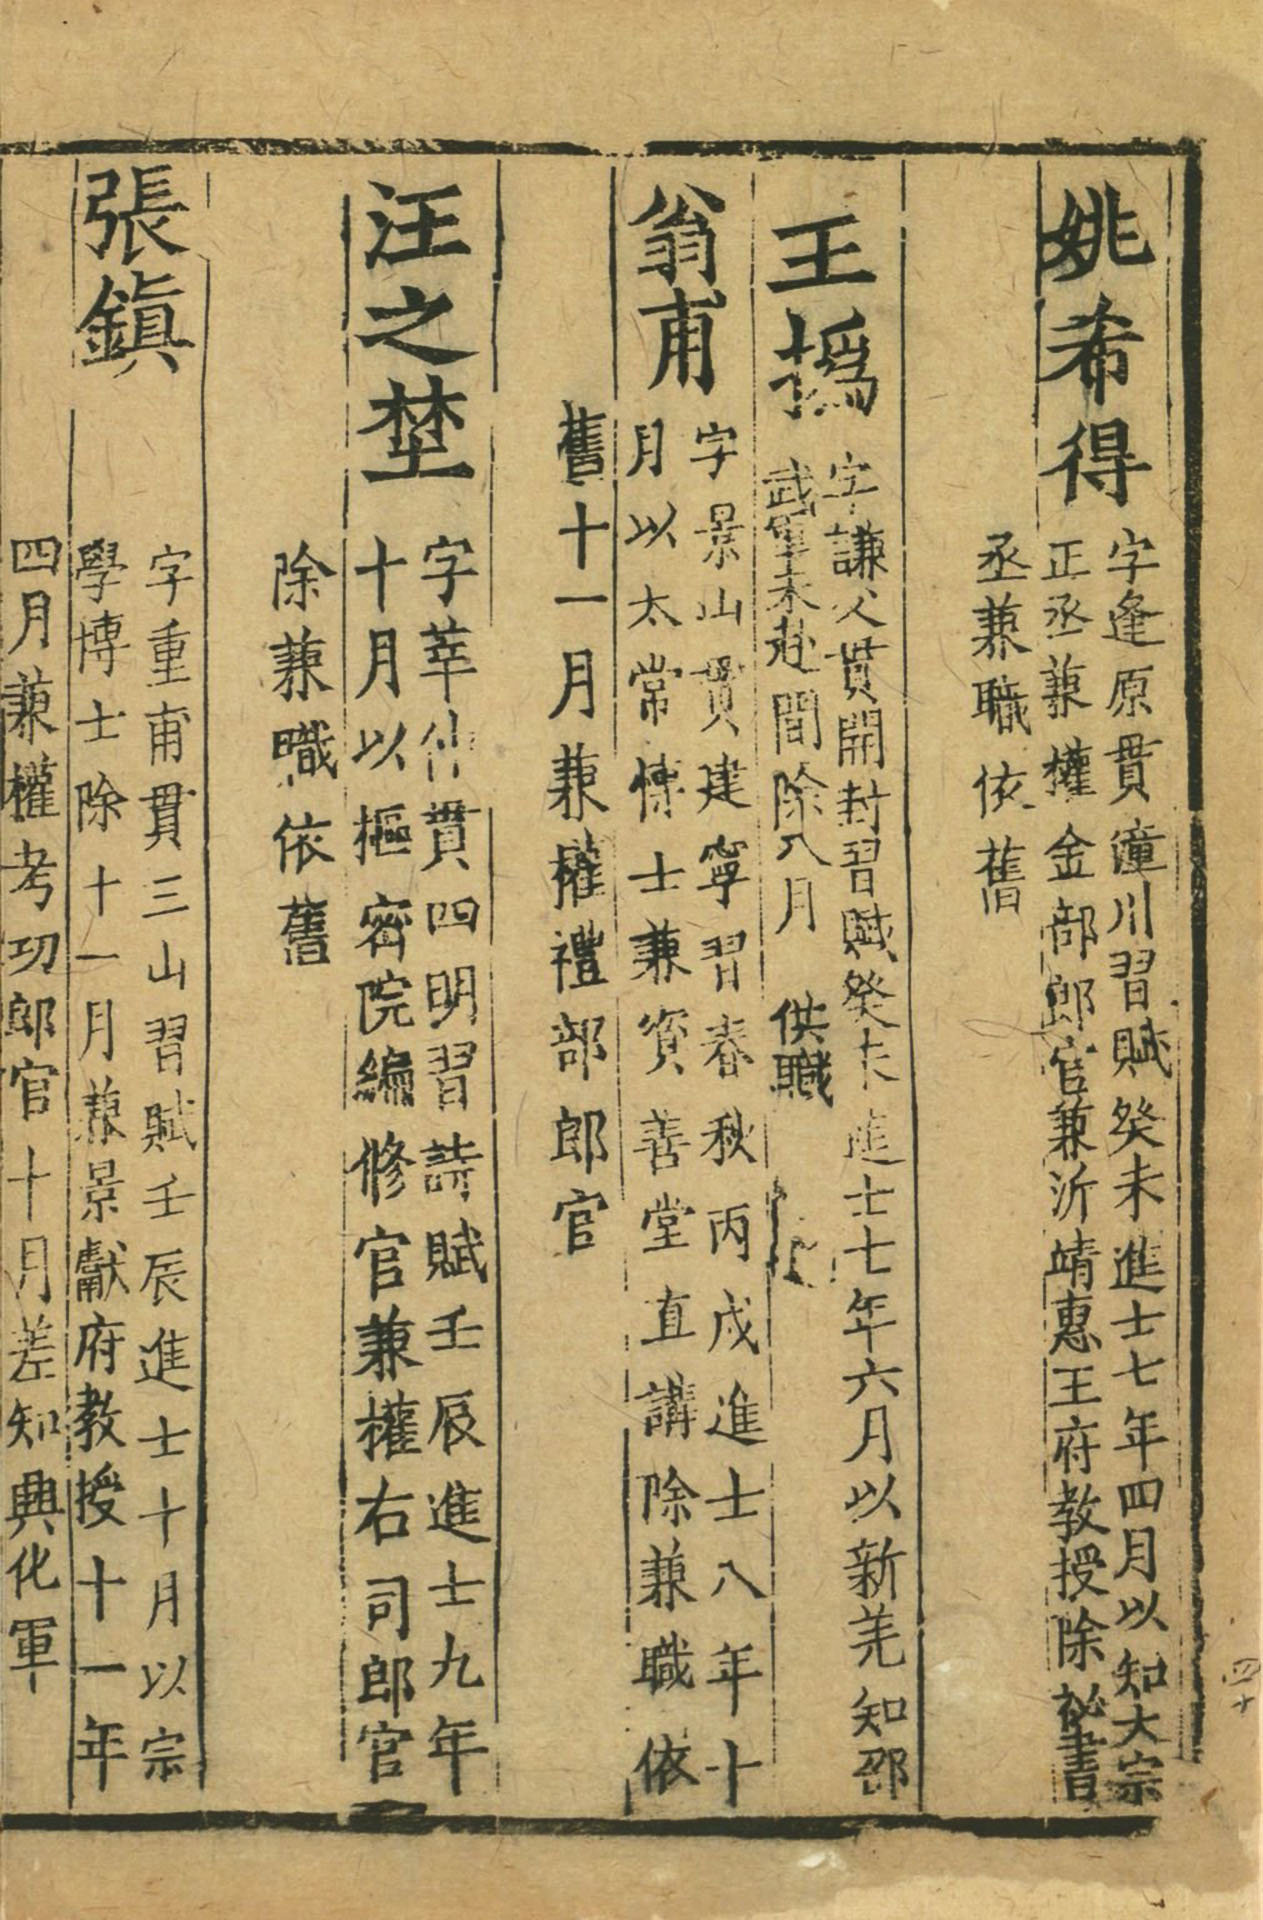 姚希得
字逢原貫潼川習賦癸未進士七年四月以知大宗
正丞兼權金部郎官兼沂靖惠王府教授除祕書
丞兼職依舊
王撝
字謙父貫開封習賦癸未進士七年六月以新差知邵
武軍未赴間除八月供職
翁甫
字景山貫建寧習春秋丙戌進士八年十
月以太常博士兼資善堂直講除兼職依
舊十一月兼權禮部郎官
汪之埜
字莘仲貫四明習詩賦壬辰進士九年
十月以樞密院編修官兼權右司郎官
除兼職依舊
張鎮
字重甫貫三山習賦壬辰進士十月以宗
學博士除十一月兼景獻府教授十一年
四月兼權考功郎官十月差知興化軍
四十